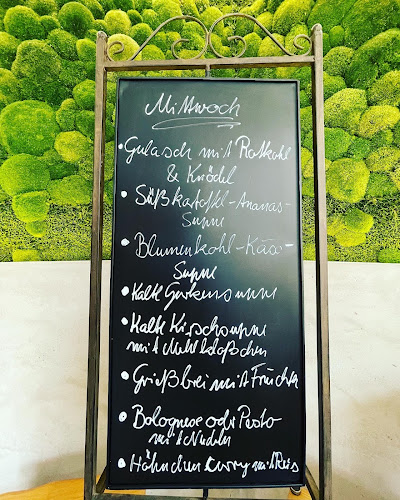 Mittwoch
• Gulasch mit Rotkohl
& Knödel
• Süßkartoffel-Ananas-
Suppe
• Blumenkohl-Käse-
Suppe
• Kalte Gurkensuppe
• Kalte Kirschsuppe
mit Mehlklößchen
• Grießbrei mit Früchten
• Bolognese oder Pesto
mit Nudeln
• Hähnchencurry mit Reis